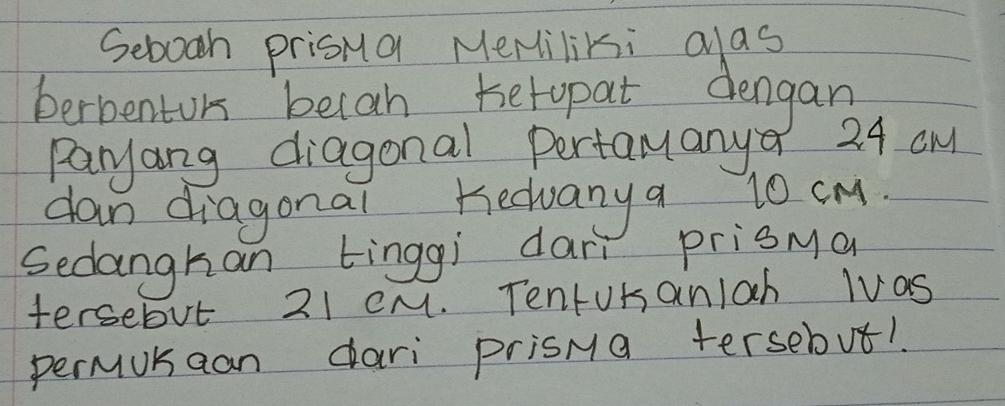 Sebuah prisma memiliki alas
berbentuk belah ketupat dengan
Panjang diagonal pertamanya 24 cm
dan diagonal keduanya 10 cm.
Sedangkan tinggi dari prisma
tersebut 21 cm. Tentukanlah luas
permukaan dari prisma tersebut!